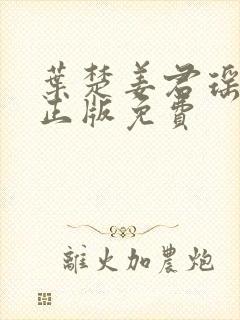 葉楚姜君瑤
正版免費
離火加農炮